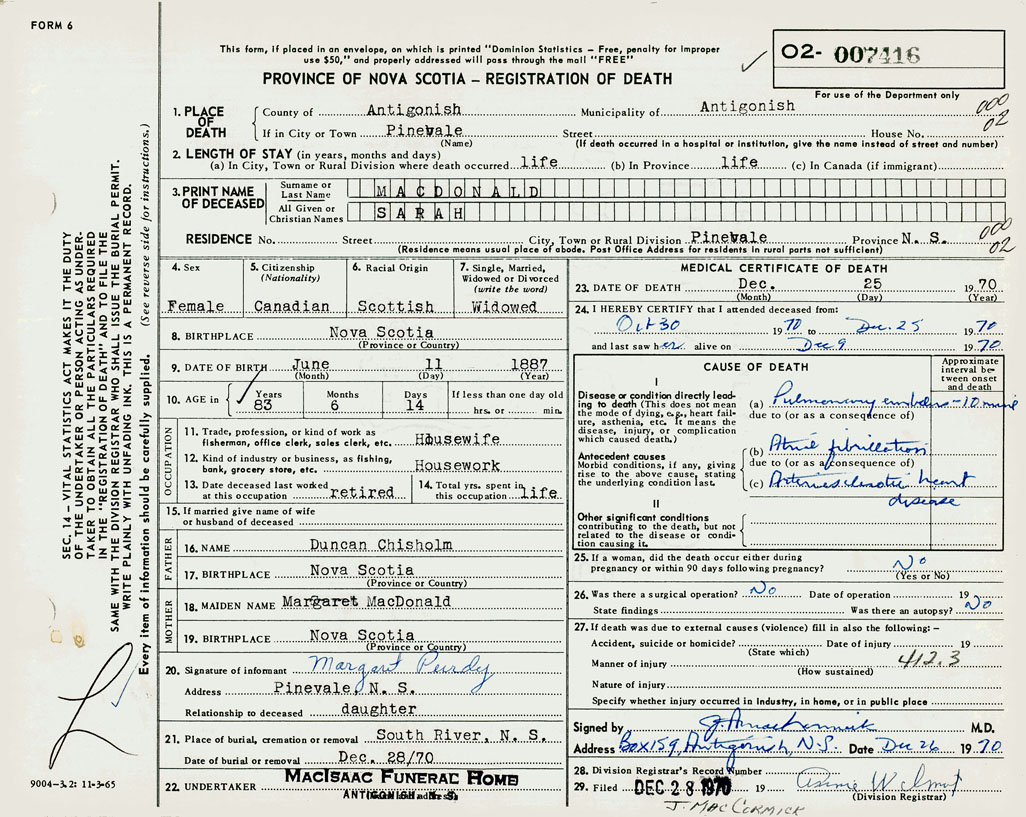 FORM 6
This form, if placed in an envelope, on which is printed "Dominion Statistics – Free, penalty for improper
use $50," and properly addressed will pass through the mail "FREE"
PROVINCE OF NOVA SCOTIA – REGISTRATION OF DEATH
02- 007416
For use of the Department only
1. PLACE OF DEATH
County of Antigonish Municipality of Antigonish 000
If in City or Town Pinevale Street House No. 02
(Name) (If death occurred in a hospital or institution, give the name instead of street and number)
2. LENGTH OF STAY (in years, months and days)
(a) In City, Town or Rural Division where death occurred life (b) In Province life (c) In Canada (if immigrant)
3. PRINT NAME OF DECEASED
Surname or Last Name MACDONALD
All Given or Christian Names SARAH
RESIDENCE No. Street City, Town or Rural Division Pinevale Province N. S. 000
(Residence means usual place of abode. Post Office Address for residents in rural parts not sufficient) 02
4. Sex Female
5. Citizenship (Nationality) Canadian
6. Racial Origin Scottish
7. Single, Married, Widowed or Divorced (write the word) Widowed
8. BIRTHPLACE Nova Scotia
(Province or Country)
9. DATE OF BIRTH June 11 1887
(Month) (Day) (Year)
10. AGE in Years 83 Months 6 Days 14 If less than one day old hrs. or min.
OCCUPATION
11. Trade, profession, or kind of work as
fisherman, office clerk, sales clerk, etc. Housewife
12. Kind of industry or business, as fishing,
bank, grocery store, etc. Housework
13. Date deceased last worked
at this occupation retired
14. Total yrs. spent in
this occupation life
15. If married give name of wife
or husband of deceased
FATHER
16. NAME Duncan Chisholm
17. BIRTHPLACE Nova Scotia
(Province or Country)
MOTHER
18. MAIDEN NAME Margaret MacDonald
19. BIRTHPLACE Nova Scotia
(Province or Country)
20. Signature of informant Margaret Purdy
Address Pinevale, N. S.
Relationship to deceased daughter
21. Place of burial, cremation or removal South River, N. S.
Date of burial or removal Dec. 28/70
22. UNDERTAKER MACISAAC FUNERAL HOME
ANTIGONISH N. S.
MEDICAL CERTIFICATE OF DEATH
23. DATE OF DEATH Dec. 25 1970
(Month) (Day) (Year)
24. I HEREBY CERTIFY that I attended deceased from:
Oct 30 1970 to Dec. 25 1970
and last saw her alive on Dec 9 1970
CAUSE OF DEATH
Approximate interval between onset and death
I
Disease or condition directly leading
to death (This does not mean
the mode of dying, e.g., heart failure,
asthenia, etc. It means the
disease, injury, or complication
which caused death.)
(a) Pulmonary embolus - 10 mins
due to (or as a consequence of)
Antecedent causes
Morbid conditions, if any, giving
rise to the above cause, stating
the underlying condition last.
(b) Atrial fibrillation
due to (or as a consequence of)
(c) Arteriosclerotic heart
disease
II
Other significant conditions
contributing to the death, but not
related to the disease or condition
causing it.
25. If a woman, did the death occur either during
pregnancy or within 90 days following pregnancy? No
(Yes or No)
26. Was there a surgical operation? No Date of operation 19
State findings Was there an autopsy? No
27. If death was due to external causes (violence) fill in also the following: –
Accident, suicide or homicide? Date of injury 19
(State which)
Manner of injury 412.3
(How sustained)
Nature of injury
Specify whether injury occurred in Industry, in home, or in public place
Signed by M.D.
Address Box 159, Antigonish, N.S. Date Dec 26 1970
28. Division Registrar's Record Number
29. Filed DEC 28 1970 19
(Division Registrar)
J. MacCormick
SEC. 14 – VITAL STATISTICS ACT MAKES IT THE DUTY
OF THE UNDERTAKER OR PERSON ACTING AS UNDER-
TAKER TO OBTAIN ALL THE PARTICULARS REQUIRED
IN THE "REGISTRATION OF DEATH" AND TO FILE THE
SAME WITH THE DIVISION REGISTRAR WHO SHALL ISSUE THE BURIAL PERMIT.
WRITE PLAINLY WITH UNFADING INK. THIS IS A PERMANENT RECORD.
Every item of information should be carefully supplied. (See reverse side for instructions.)
9004–3.2: 11-3-65